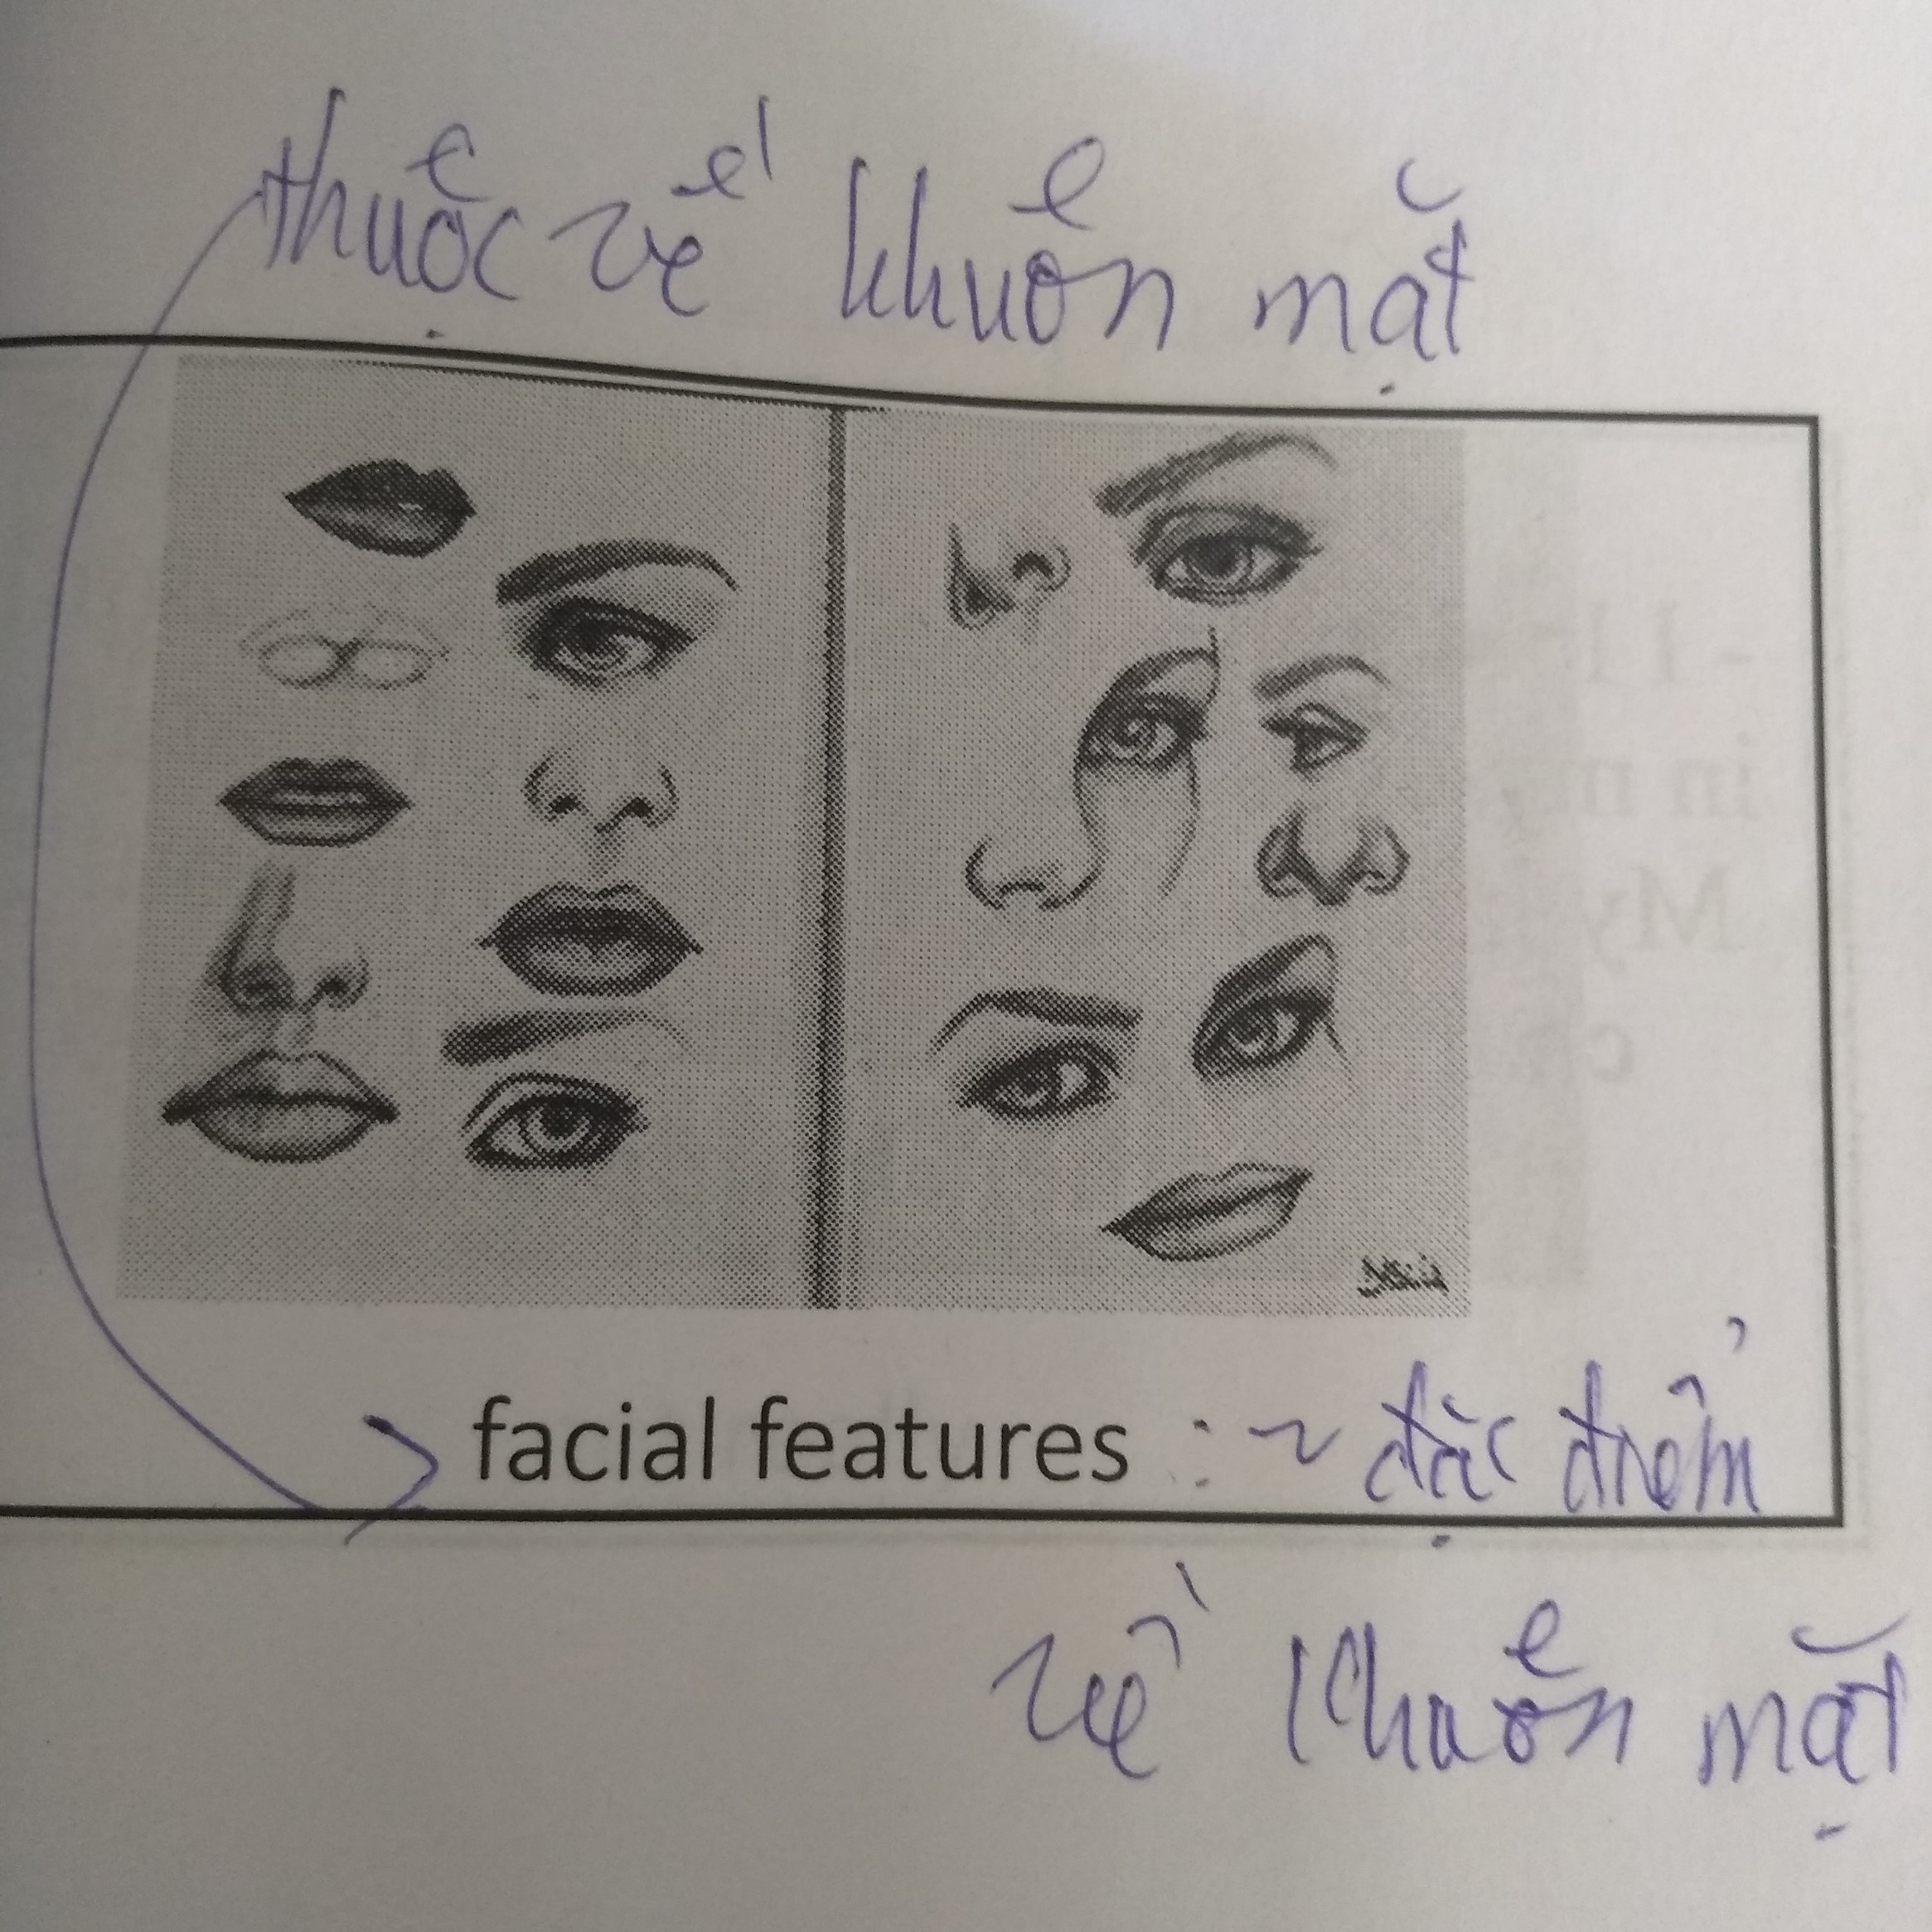 thuộc về khuôn mặt
facial features : ~ đặc điểm
về khuôn mặt